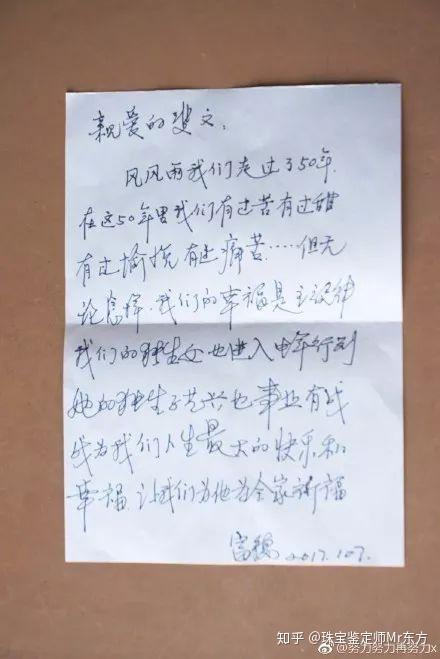 亲爱的斐文：
风风雨我们走过了50年
在这50年里我们有过苦有过甜
有过愉悦有过痛苦……但无
论怎样，我们的幸福是主旋律
我们的独生女也进入中年行列
她的独生子艺兴也事业有成
成为我们人生最大的快乐和
幸福，让我们为他为全家祈福
富穗 2017.10.7.
知乎 @珠宝鉴定师Mr东方
@努力努力再努力x